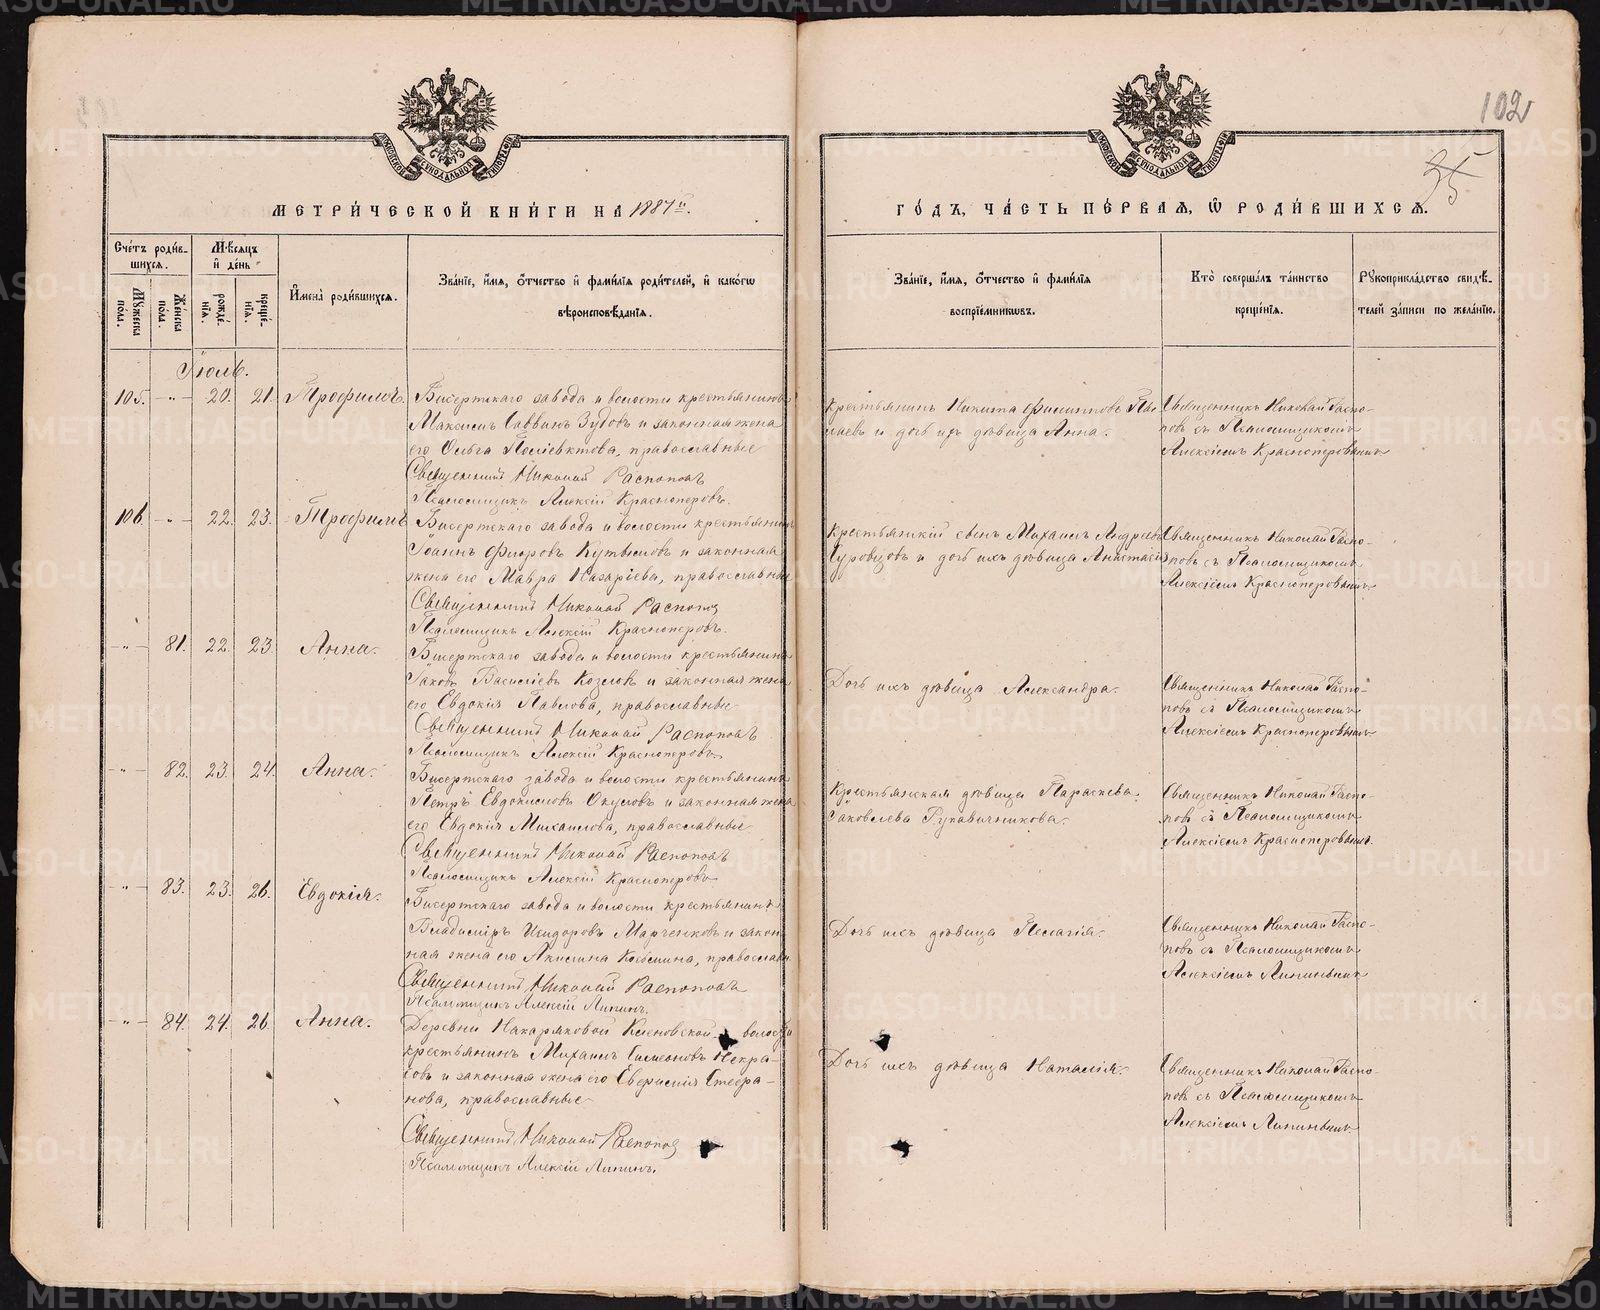 102
35
МЕТРИЧЕСКОЙ КНИГИ НА 1887й.
ГОДЪ, ЧАСТЬ ПЕРВАЯ, Ѿ РОДИВШИХСЯ.
Счетъ родив-
шихся.
Мѣсяцъ
и день
Мужеска пола.
Женска пола.
рождє-
нія.
крещє-
нія.
Имена родившихся.
Званіе, имя, отчество и фамилія родителей, и какогѡ
вѣроисповѣданія.
Званіе, имя, отчество и фамилія
воспріемникѡвъ.
Кто совершалъ таинство
крещенія.
Рукоприкладство свидѣ-
телей записи по желанію.
Іюль.
105. -"- 20. 21. Трофимъ.
Бисертскаго завода и волости крестьянинъ
Максимъ Саввинъ Зубовъ и законная жена
его Ольга Поліевктова, православные
Священникъ Николай Распоповъ
Псаломщикъ Алексій Красноперовъ.
Крестьянинъ Никита Филипповъ
и дочь ихъ дѣвица Анна.
Священникъ Николай Распо-
повъ съ Псаломщикомъ
Алексіемъ Красноперовымъ
106. -"- 22. 23. Трофимъ
Бисертскаго завода и волости крестьянинъ
Іоаннъ Ѳедоровъ и законная
жена его Мавра Назаріева, православные
Священникъ Николай Распоповъ
Псаломщикъ Алексій Красноперовъ.
Крестьянскій сынъ Михаилъ Андреевъ
Суровцовъ и дочь ихъ дѣвица Анастасія
Священникъ Николай Распо-
повъ съ Псаломщикомъ
Алексіемъ Красноперовымъ
-"- 81. 22. 23. Анна.
Бисертскаго завода и волости крестьянинъ
Іаковъ Василіевъ Козловъ и законная жена
его Евдокія Павлова, православные
Священникъ Николай Распоповъ
Псаломщикъ Алексій Красноперовъ
Дочь ихъ дѣвица Александра.
Священникъ Николай Распо-
повъ съ Псаломщикомъ
Алексіемъ Красноперовымъ
-"- 82. 23. 24. Анна.
Бисертскаго завода и волости крестьянинъ
Петръ Евдокимовъ Окуловъ и законная жена
его Евдокія Михаилова, православные
Священникъ Николай Распоповъ
Псаломщикъ Алексій Красноперовъ
Крестьянская дѣвица Параскева
Іаковлева Рукавичникова.
Священникъ Николай Распо-
повъ съ Псаломщикомъ
Алексіемъ Красноперовымъ.
-"- 83. 23. 26. Евдокія.
Бисертскаго завода и волости крестьянинъ
Владиміръ Исидоровъ Марченковъ и закон-
ная жена его Акилина Козмина, православн.
Священникъ Николай Распоповъ
Псаломщикъ Алексій Липинъ.
Дочь ихъ дѣвица Пелагія.
Священникъ Николай Распо-
повъ съ Псаломщикомъ
Алексіемъ Липинымъ
-"- 84. 24. 26. Анна.
Деревни Накаряковой Кленовской волости
крестьянинъ Михаилъ Симеоновъ Некра-
совъ и законная жена его Стефа-
нова, православные
Священникъ Николай Распоповъ
Псаломщикъ Алексій Липинъ.
Дочь ихъ дѣвица Наталія.
Священникъ Николай Распо-
повъ съ Псаломщикомъ
Алексіемъ Липинымъ
METRIKI.GASO-URAL.RU